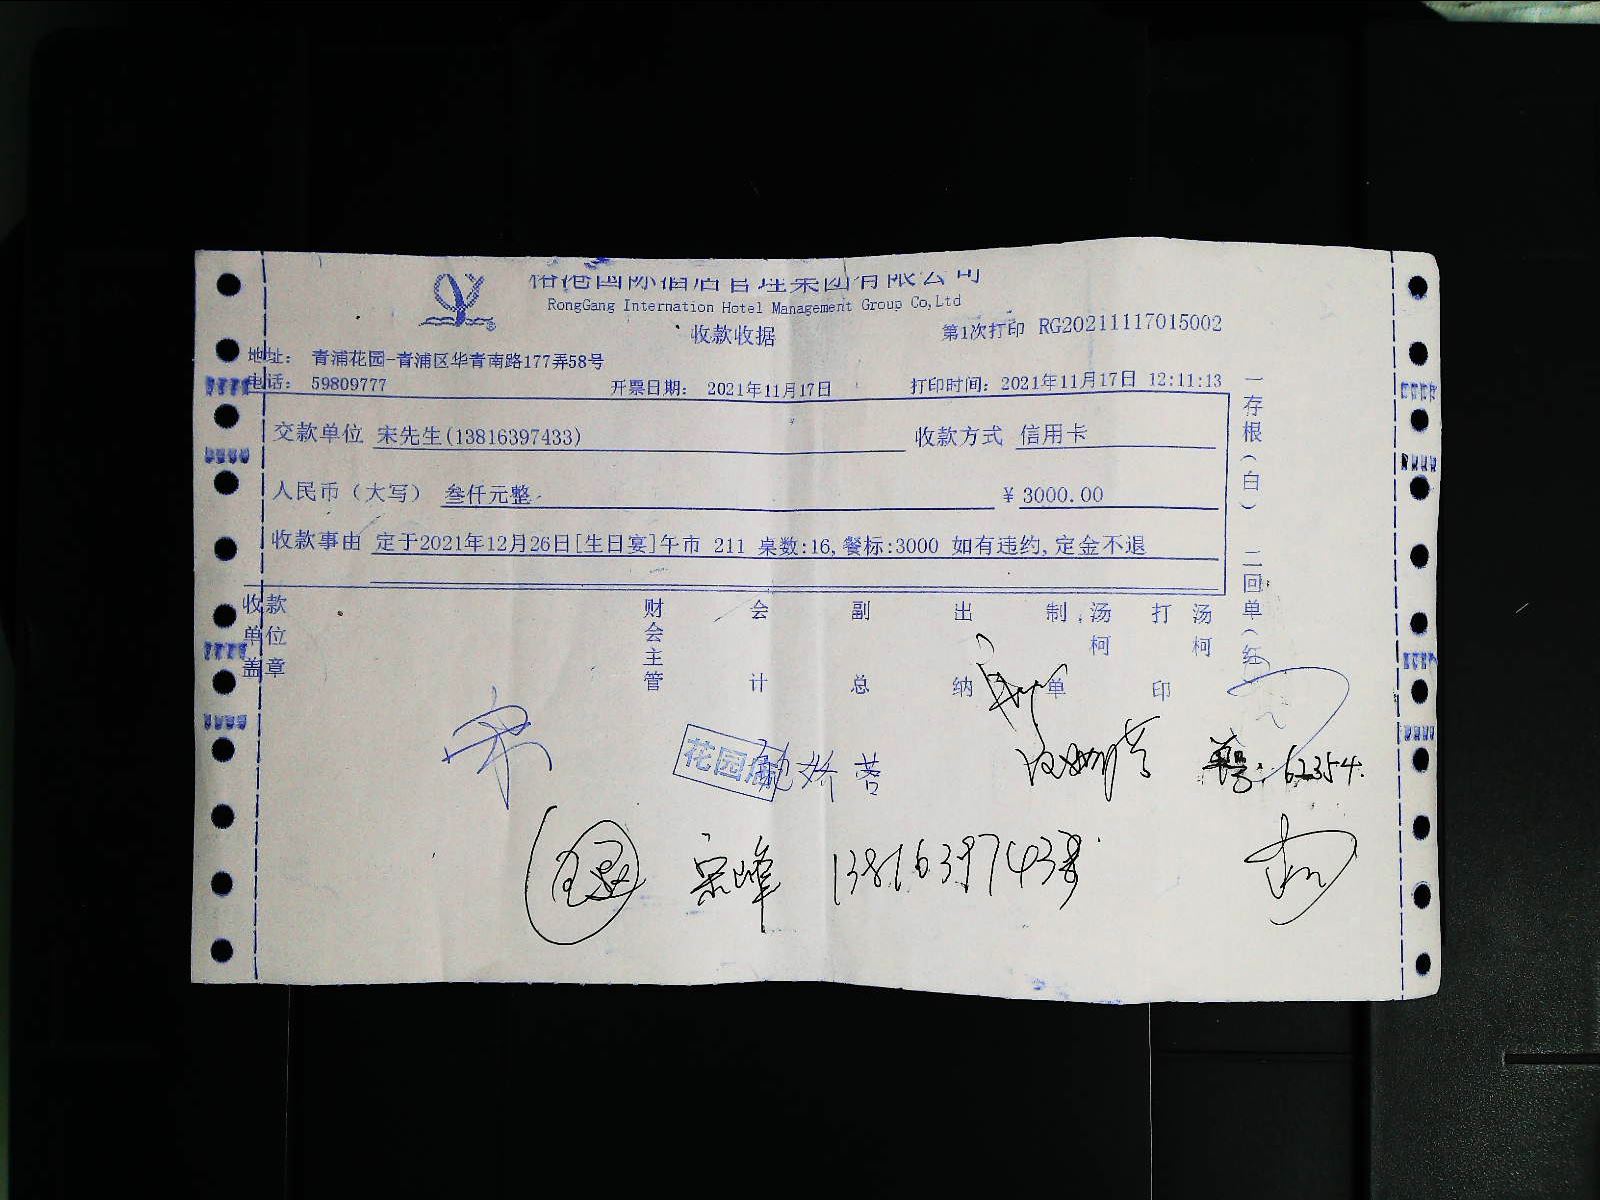 裕港国际酒店管理集团有限公司
RongGang Internation Hotel Management Group Co,Ltd
收款收据
第1次打印 RG20211117015002
地址： 青浦花园-青浦区华青南路177弄58号
电话： 59809777
开票日期： 2021年11月17日
打印时间：2021年11月17日 12:11:13
交款单位 宋先生(13816397433)
收款方式 信用卡
人民币（大写） 叁仟元整
¥ 3000.00
收款事由 定于2021年12月26日[生日宴]午市 211 桌数:16,餐标:3000 如有违约,定金不退
一存根（白） 二回单（红
收款单位盖章
财会主管
会计
副总
出纳
制单
汤柯
打印
汤柯
宋
花园店
娇蓉
单号：62354.
宋峰 13816397433